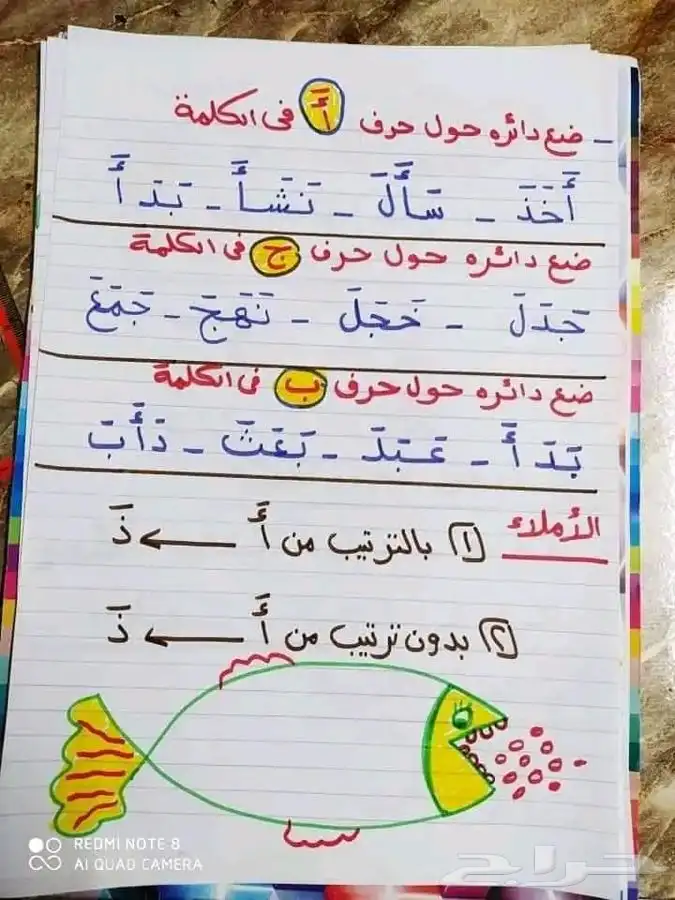 ضع دائره حول حرف أَ فى الكلمة
أَخَذَ - سَأَلَ - نَشَأَ - بَدَأَ
ضع دائره حول حرف ج فى الكلمة
جَدَلَ - خَجَلَ - نَهَجَ - جَمَعَ
ضع دائره حول حرف ب فى الكلمة
بَدَأَ - عَبَدَ - بَعَثَ - دَأَبَ
الأملاء
١ بالترتيب من أَ ← ذَ
٢ بدون ترتيب من أَ ← ذَ
REDMI NOTE 8
AI QUAD CAMERA
حراج